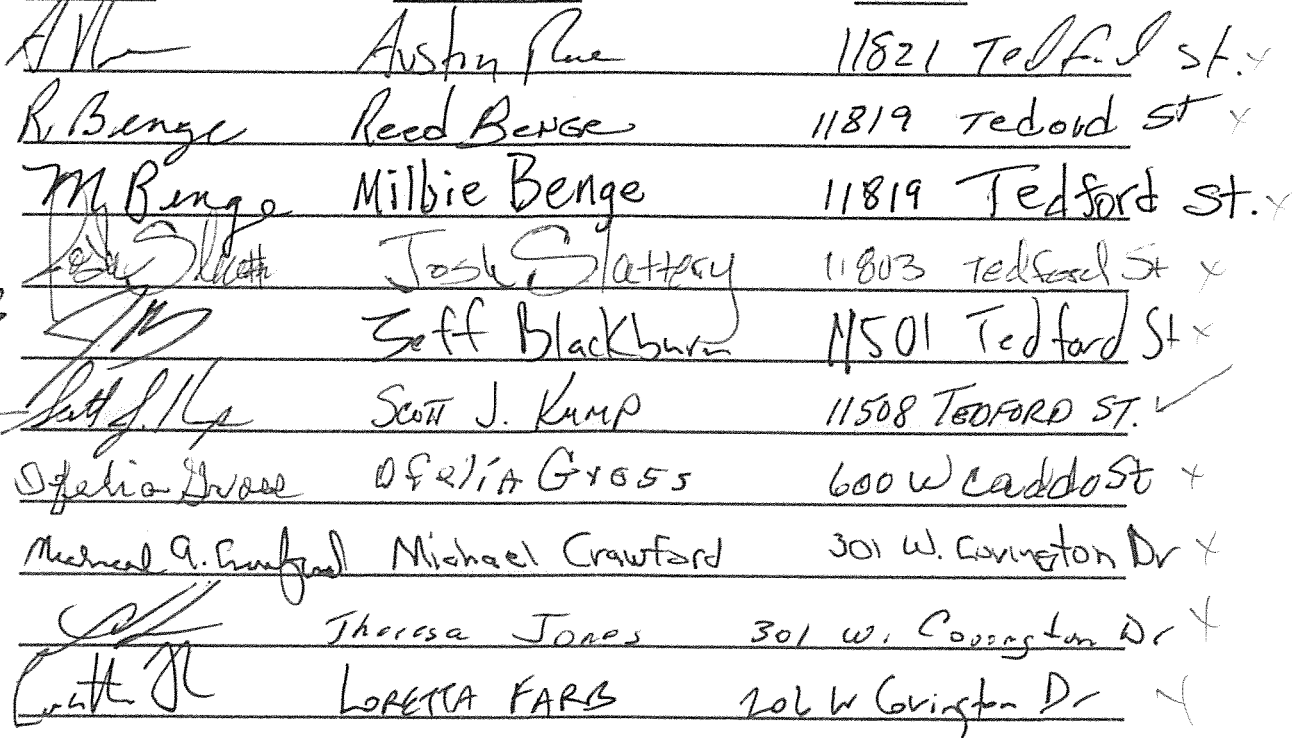 Austin Rue 11821 Tedford St. x
R. Benge Reed Benge 11819 Tedord St x
M Benge Milbie Benge 11819 Tedford St. x
Josh Slatt Josh Slattery 11803 Tedford St x
JB Jeff Blackburn 11501 Tedford St x
Scott J. Kump 11508 TEDFORD ST. ✓
Ofelia Gross Ofelia Gross 600 W Caddo St x
Micheal A. Crawford Michael Crawford 301 W. Covington Dr x
Theresa Jones 301 W. Covington Dr x
LORETTA FARB 202 W Covington Dr x